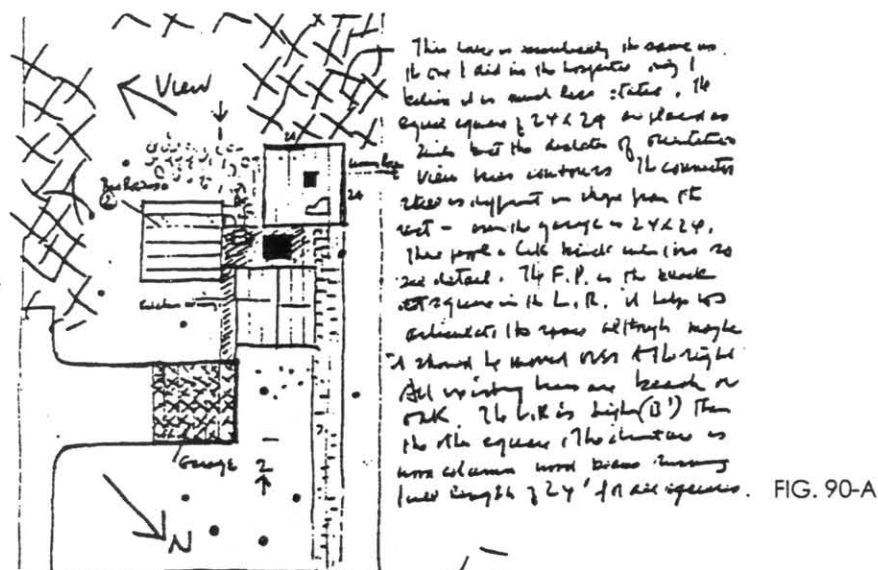 View
24
24
Garage
2
N
This house is essentially the same as
the one I did in the hospital only I
believe it is much less static. The
equal squares of 24 x 24 are placed as
but the dictates of orientation
view trees contours. The connector
is different in shape from the
rest - even the garage is 24 x 24.
detail. The F.P. is the black
square in the L.R. it helps to
articulate the space although maybe
it should be moved over to the right
All existing trees are beech or
oak. The L.R. is higher (13') than
the other squares. The structure is
wood columns wood beams running
full length of 24' for all squares.
FIG. 90-A